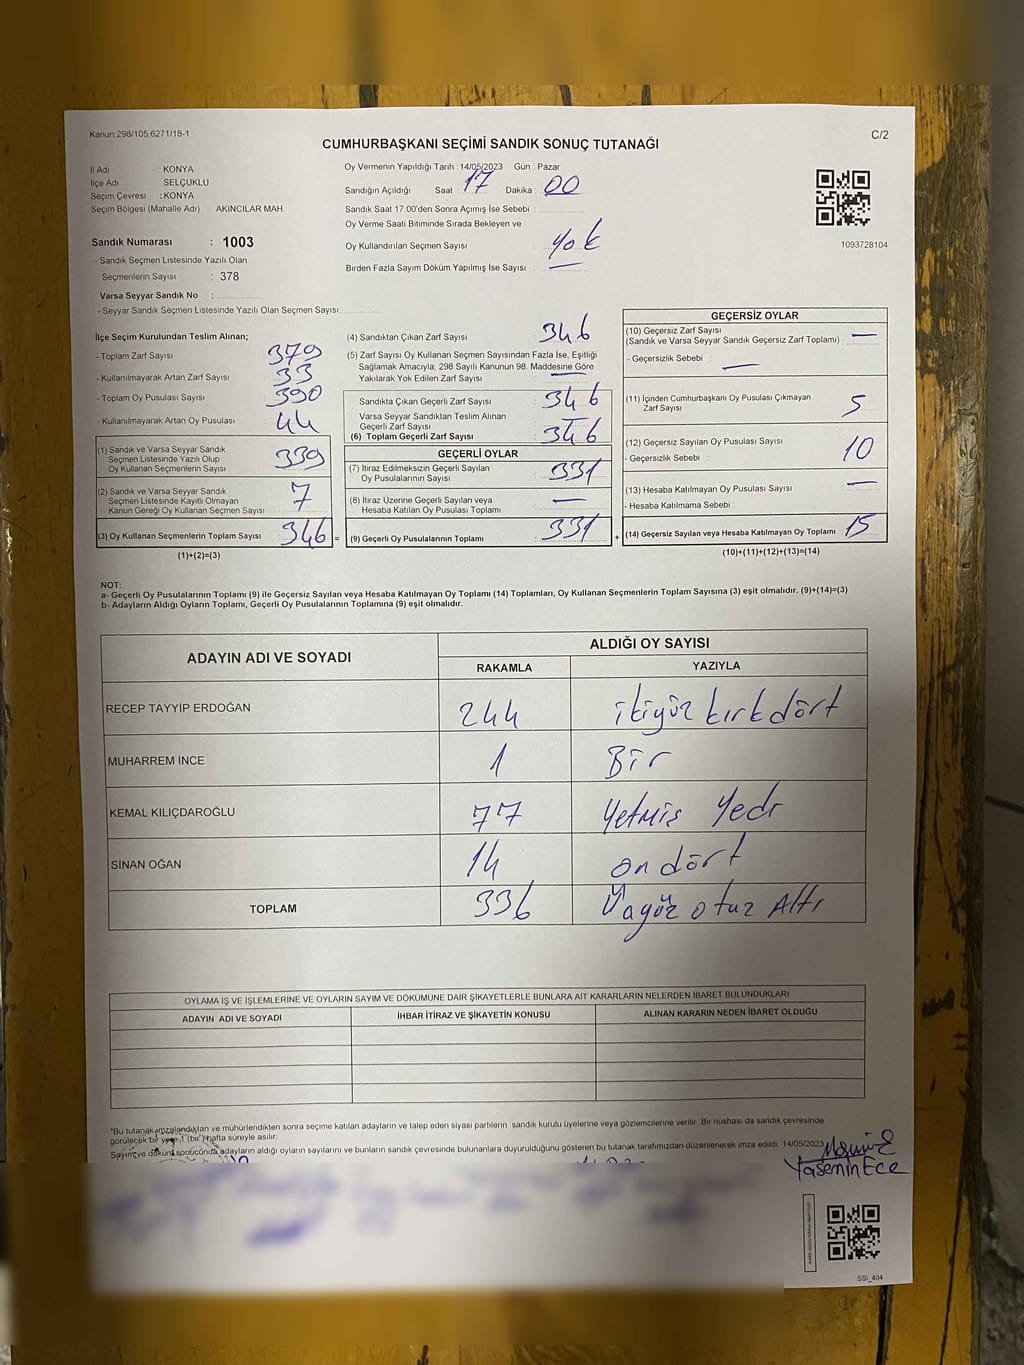 Kanun:298/105,6271/18-1
C/2
CUMHURBAŞKANI SEÇİMİ SANDIK SONUÇ TUTANAĞI
İl Adı KONYA
İlçe Adı SELÇUKLU
Seçim Çevresi : KONYA
Seçim Bölgesi (Mahalle Adı) AKINCILAR MAH.
Sandık Numarası : 1003
- Sandık Seçmen Listesinde Yazılı Olan
Seçmenlerin Sayısı : 378
Varsa Seyyar Sandık No :
- Seyyar Sandık Seçmen Listesinde Yazılı Olan Seçmen Sayısı
Oy Vermenin Yapıldığı Tarih :14/05/2023 Gün : Pazar
Sandığın Açıldığı Saat : 17 Dakika : 00
Sandık Saat 17.00'den Sonra Açımış İse Sebebi :
Oy Verme Saati Bitiminde Sırada Bekleyen ve
Oy Kullandırılan Seçmen Sayısı : Yok
Birden Fazla Sayım Döküm Yapılmış İse Sayısı : —
1093728104
İlçe Seçim Kurulundan Teslim Alınan;
- Toplam Zarf Sayısı 379
- Kullanılmayarak Artan Zarf Sayısı 33
- Toplam Oy Pusulası Sayısı 390
- Kullanılmayarak Artan Oy Pusulası 44
(1) Sandık ve Varsa Seyyar Sandık
Seçmen Listesinde Yazılı Olup
Oy Kullanan Seçmenlerin Sayısı 339
(2) Sandık ve Varsa Seyyar Sandık
Seçmen Listesinde Kayıtlı Olmayan
Kanun Gereği Oy Kullanan Seçmen Sayısı 7
(3) Oy Kullanan Seçmenlerin Toplam Sayısı 346 =
(1)+(2)=(3)
(4) Sandıktan Çıkan Zarf Sayısı 346
(5) Zarf Sayısı Oy Kullanan Seçmen Sayısından Fazla İse, Eşitliği
Sağlamak Amacıyla, 298 Sayılı Kanunun 98. Maddesine Göre
Yakılarak Yok Edilen Zarf Sayısı —
Sandıkta Çıkan Geçerli Zarf Sayısı 346
Varsa Seyyar Sandıktan Teslim Alınan
Geçerli Zarf Sayısı —
(6) Toplam Geçerli Zarf Sayısı 346
GEÇERLİ OYLAR
(7) İtiraz Edilmeksizin Geçerli Sayılan
Oy Pusulalarının Sayısı 331
(8) İtiraz Üzerine Geçerli Sayılan veya
Hesaba Katılan Oy Pusulası Toplamı —
(9) Geçerli Oy Pusulalarının Toplamı : 331 +
GEÇERSİZ OYLAR
(10) Geçersiz Zarf Sayısı
(Sandık ve Varsa Seyyar Sandık Geçersiz Zarf Toplamı) —
- Geçersizlik Sebebi : —
(11) İçinden Cumhurbaşkanı Oy Pusulası Çıkmayan
Zarf Sayısı 5
(12) Geçersiz Sayılan Oy Pusulası Sayısı 10
- Geçersizlik Sebebi :
(13) Hesaba Katılmayan Oy Pusulası Sayısı —
- Hesaba Katılmama Sebebi
(14) Geçersiz Sayılan veya Hesaba Katılmayan Oy Toplamı 15
(10)+(11)+(12)+(13)=(14)
NOT:
a- Geçerli Oy Pusulalarının Toplamı (9) ile Geçersiz Sayılan veya Hesaba Katılmayan Oy Toplamı (14) Toplamları, Oy Kullanan Seçmenlerin Toplam Sayısına (3) eşit olmalıdır. (9)+(14)=(3)
b- Adayların Aldığı Oyların Toplamı, Geçerli Oy Pusulalarının Toplamına (9) eşit olmalıdır.
ADAYIN ADI VE SOYADI ALDIĞI OY SAYISI
RAKAMLA YAZIYLA
RECEP TAYYİP ERDOĞAN 244 ikiyüz kırk dört
MUHARREM İNCE 1 Bir
KEMAL KILIÇDAROĞLU 77 Yetmiş Yedi
SİNAN OĞAN 14 on dört
TOPLAM 336 otuz Altı
OYLAMA İŞ VE İŞLEMLERİNE VE OYLARIN SAYIM VE DÖKÜMÜNE DAİR ŞİKAYETLERLE BUNLARA AİT KARARLARIN NELERDEN İBARET BULUNDUKLARI
ADAYIN ADI VE SOYADI İHBAR İTİRAZ VE ŞİKAYETİN KONUSU ALINAN KARARIN NEDEN İBARET OLDUĞU
*Bu tutanak imzalandıktan ve mühürlendikten sonra seçime katılan adayların ve talep eden siyasi partilerin sandık kurulu üyelerine veya gözlemcilerine verilir. Bir nüshası da sandık çevresinde
görülecek bir yere 1 (bir) hafta süreyle asılır.
Sayım ve döküm sonucunda adayların aldığı oyların sayılarını ve bunların sandık çevresinde bulunanlara duyurulduğunu gösteren bu tutanak tarafımızdan düzenlenerek imza edildi. 14/05/2023
Yasemin Ece
SSİ_404